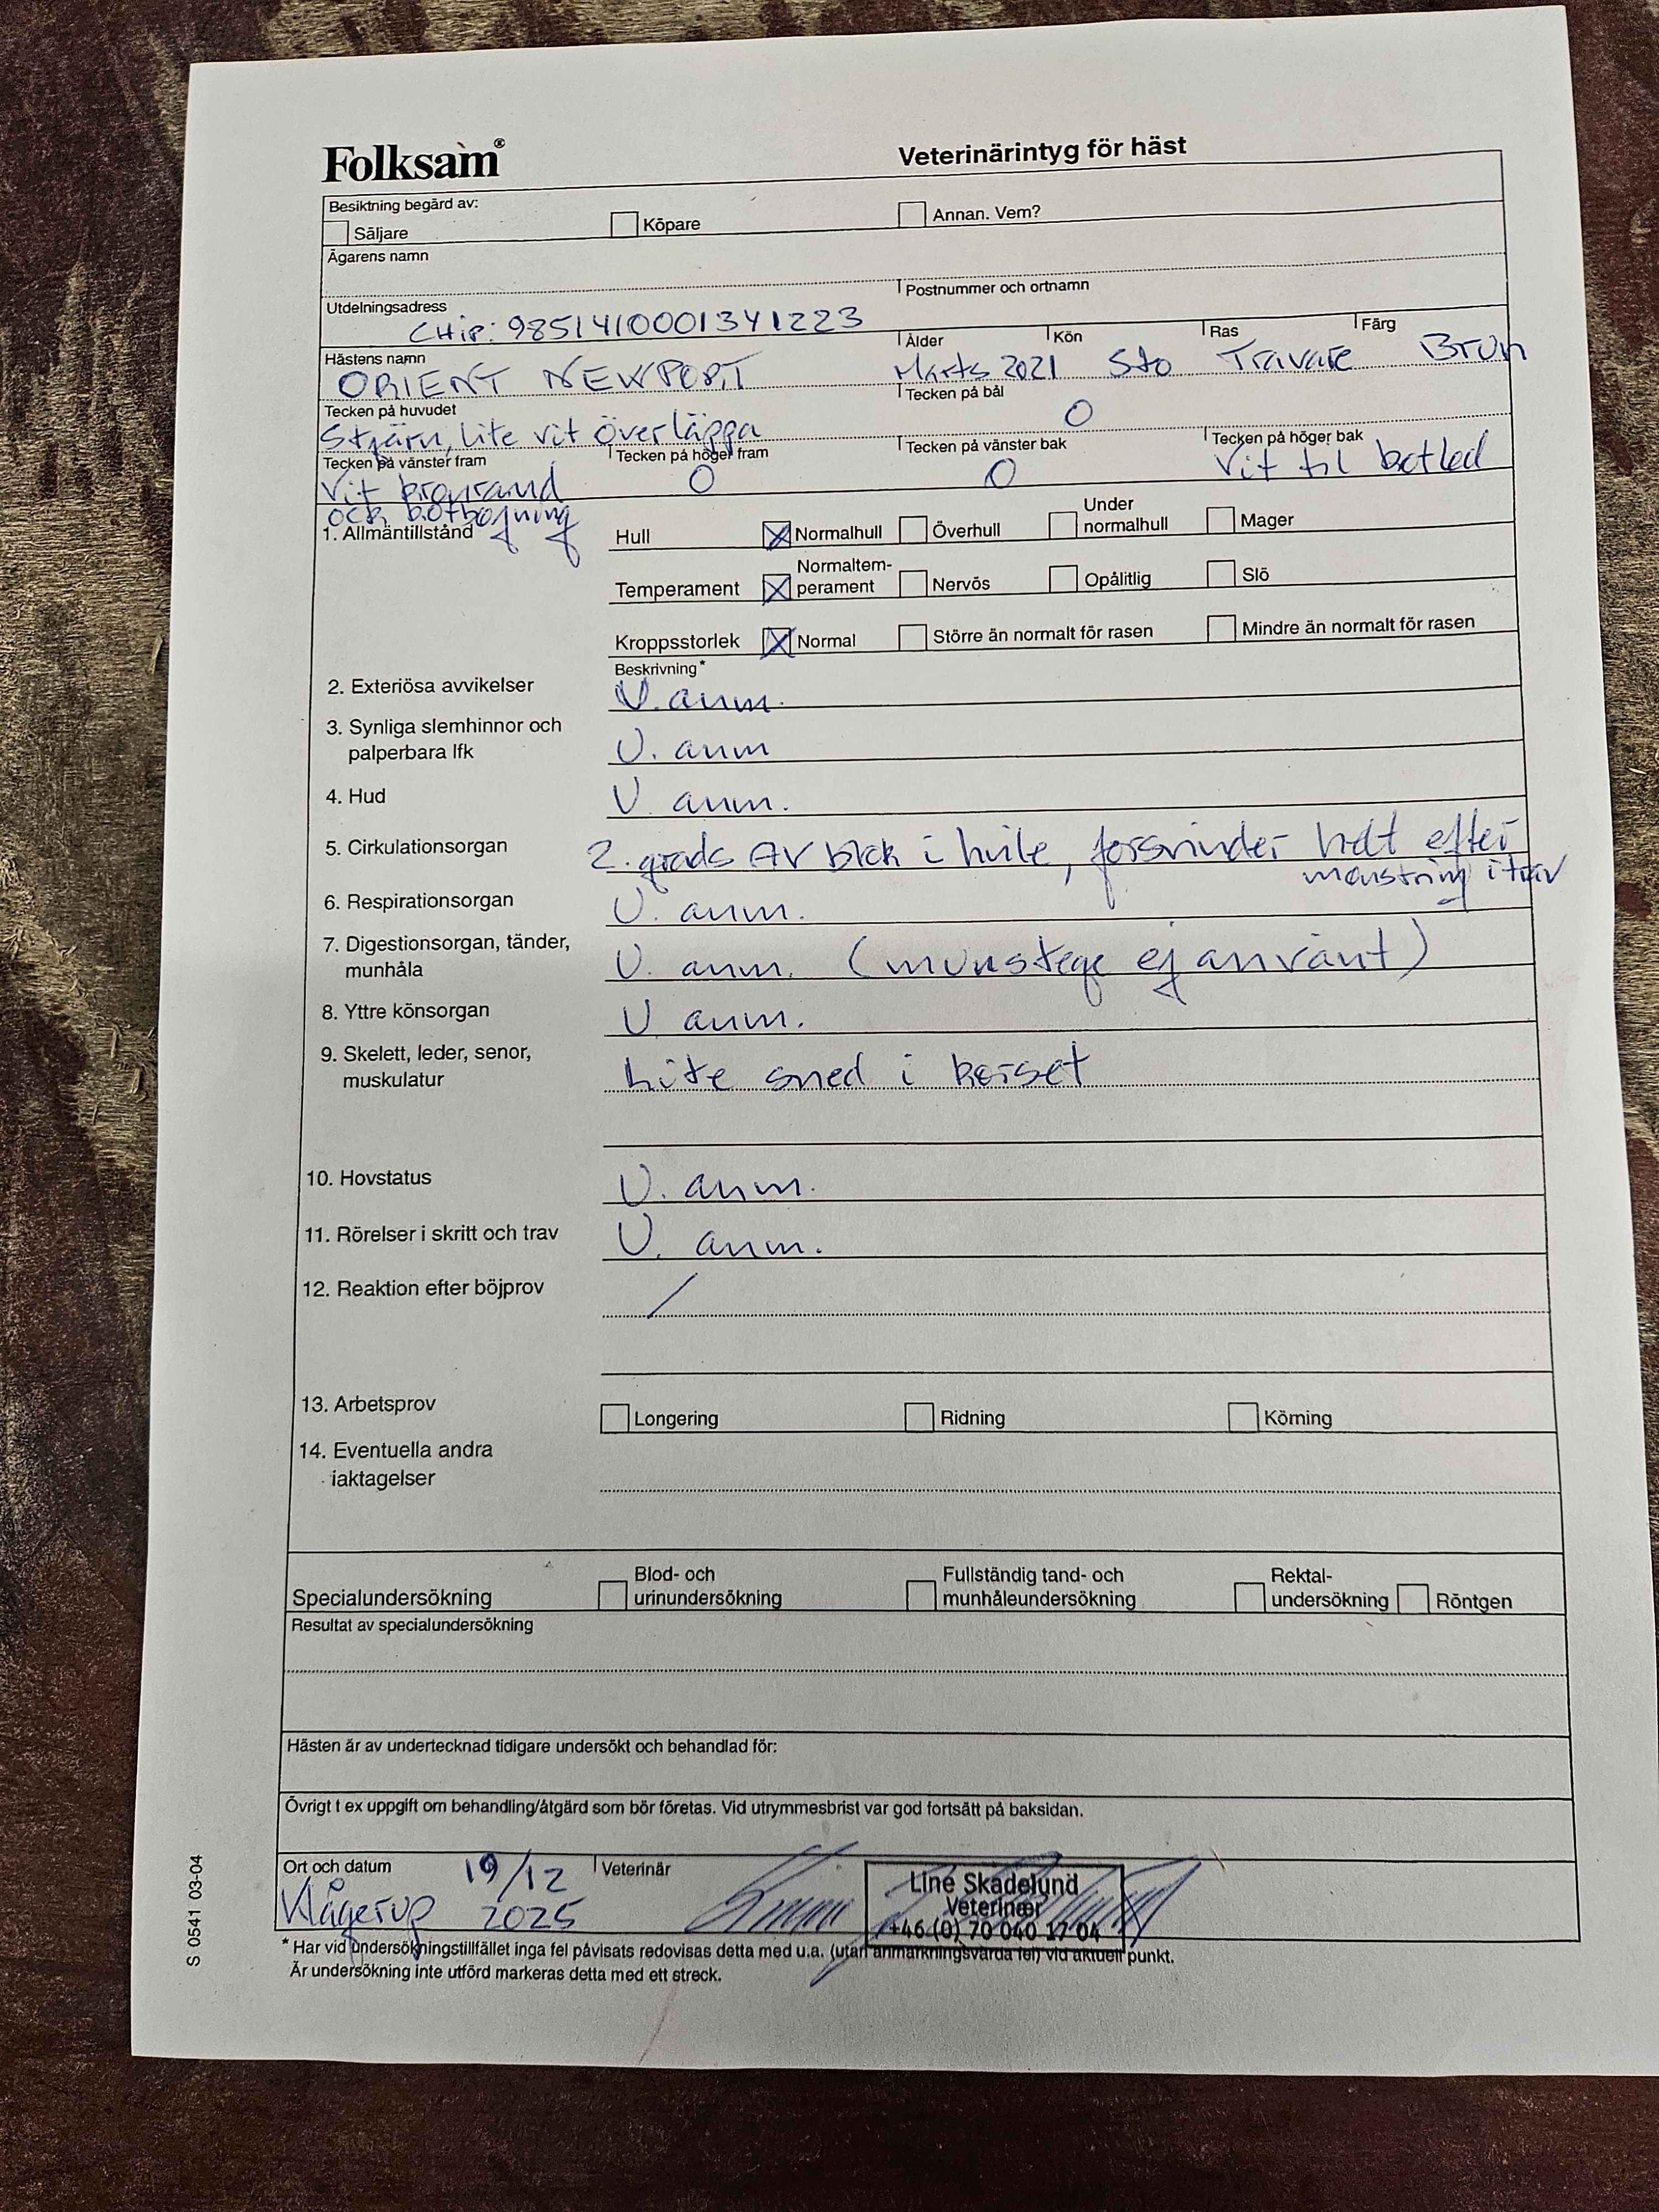 Folksam®
Veterinärintyg för häst
Besiktning begärd av:
Säljare Köpare Annan. Vem?
Ägarens namn
Utdelningsadress Postnummer och ortnamn
CHip: 985141000134 1223
Hästens namn Ålder Kön Ras Färg
ORIENT NEWPORT Marts 2021 Sto Travare Brun
Tecken på huvudet Tecken på bål
Stjärn, lite vit överläppa 0
Tecken på vänster fram Tecken på höger fram Tecken på vänster bak Tecken på höger bak
Vit kronrand 0 0 Vit til kotled
ock kotbøjning
1. Allmäntillstånd
Hull Normalhull Överhull Under normalhull Mager
Temperament Normaltem-perament Nervös Opålitlig Slö
Kroppsstorlek Normal Större än normalt för rasen Mindre än normalt för rasen
Beskrivning*
2. Exteriösa avvikelser U. anm.
3. Synliga slemhinnor och
palperbara lfk U. anm
4. Hud U anm.
5. Cirkulationsorgan 2. grads AV blok i hvile, forsvinder helt efter
mønstring i trav
6. Respirationsorgan U. anm.
7. Digestionsorgan, tänder,
munhåla U. anm. (munstege ej använt)
8. Yttre könsorgan U anm.
9. Skelett, leder, senor,
muskulatur Lite sned i korset
10. Hovstatus U. anm.
11. Rörelser i skritt och trav U. anm.
12. Reaktion efter böjprov /
13. Arbetsprov Longering Ridning Körning
14. Eventuella andra
iaktagelser
Specialundersökning Blod- och urinundersökning Fullständig tand- och munhåleundersökning Rektal-undersökning Röntgen
Resultat av specialundersökning
Hästen är av undertecknad tidigare undersökt och behandlad för:
Övrigt t ex uppgift om behandling/åtgärd som bör företas. Vid utrymmesbrist var god fortsätt på baksidan.
Ort och datum 19/12 Veterinär
Klågerup 2025
Line Skadelund
Veterinær
+46 (0) 70 040 17 04
* Har vid undersökningstillfället inga fel påvisats redovisas detta med u.a. (utan anmärkningsvärda fel) vid aktuell punkt.
Är undersökning inte utförd markeras detta med ett streck.
S 0541 03-04